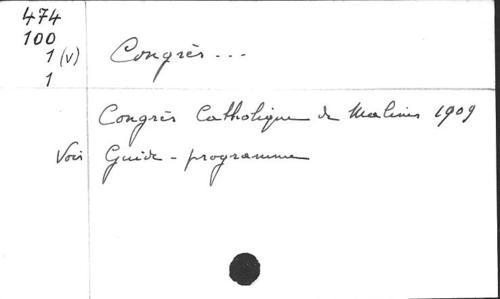 474
100
1 (v)
1
Congrès ...
Congrès Catholique de Malines 1909
Voir Guide - programme